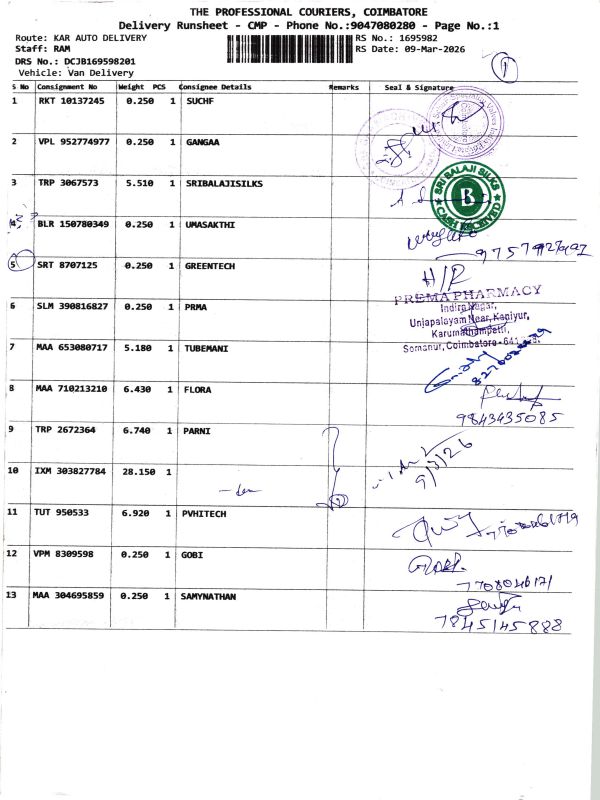 THE PROFESSIONAL COURIERS, COIMBATORE
Delivery Runsheet - CMP - Phone No.:9047080280 - Page No.:1
Route: KAR AUTO DELIVERY RS No.: 1695982
Staff: RAM RS Date: 09-Mar-2026
DRS No.: DCJB169598201
Vehicle: Van Delivery
1
S No Consignment No Weight PCS Consignee Details Remarks Seal & Signature
1 RKT 10137245 0.250 1 SUCHF
2 VPL 952774977 0.250 1 GANGAA
3 TRP 3067573 5.510 1 SRIBALAJISILKS
SRI BALAJI SILKS
B
CASH RECEIVED
4 BLR 150780349 0.250 1 UMASAKTHI
5 SRT 8707125 0.250 1 GREENTECH
H/R
6 SLM 390816827 0.250 1 PRMA
PREMA PHARMACY
Indira Nagar,
Unjapalayam Near, Kaniyur,
Karumathampatti,
Somanur, Coimbatore - 641
7 MAA 653080717 5.180 1 TUBEMANI
8 MAA 710213210 6.430 1 FLORA
9843435085
9 TRP 2672364 6.740 1 PARNI
9/3/26
10 IXM 303827784 28.150 1
11 TUT 950533 6.920 1 PVHITECH
12 VPM 8309598 0.250 1 GOBI
13 MAA 304695859 0.250 1 SAMYNATHAN
7845145888